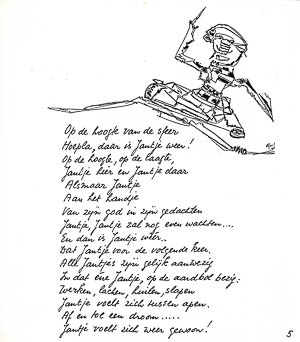 Op de hoogte van de sfeer
Hoepla, daar is Jantje weer!
Op de hoogte, op de laagte,
Jantje hier en Jantje daar
Alsmaar Jantje
Aan het handje
Van zijn god in zijn gedachten
Jantje, Jantje zal nog even wachten....
En dan is Jantje weer..
Dat Jantje voor de volgende keer,
Alle Jantjes zijn gelijk aanwezig
In dat ene Jantje, op de aardbol bezig.
Werken, lachen, huilen, slapen
Jantje voelt zich tussen apen.
Af en toe een droom.....
Jantje voelt zich weer gewoon!
5